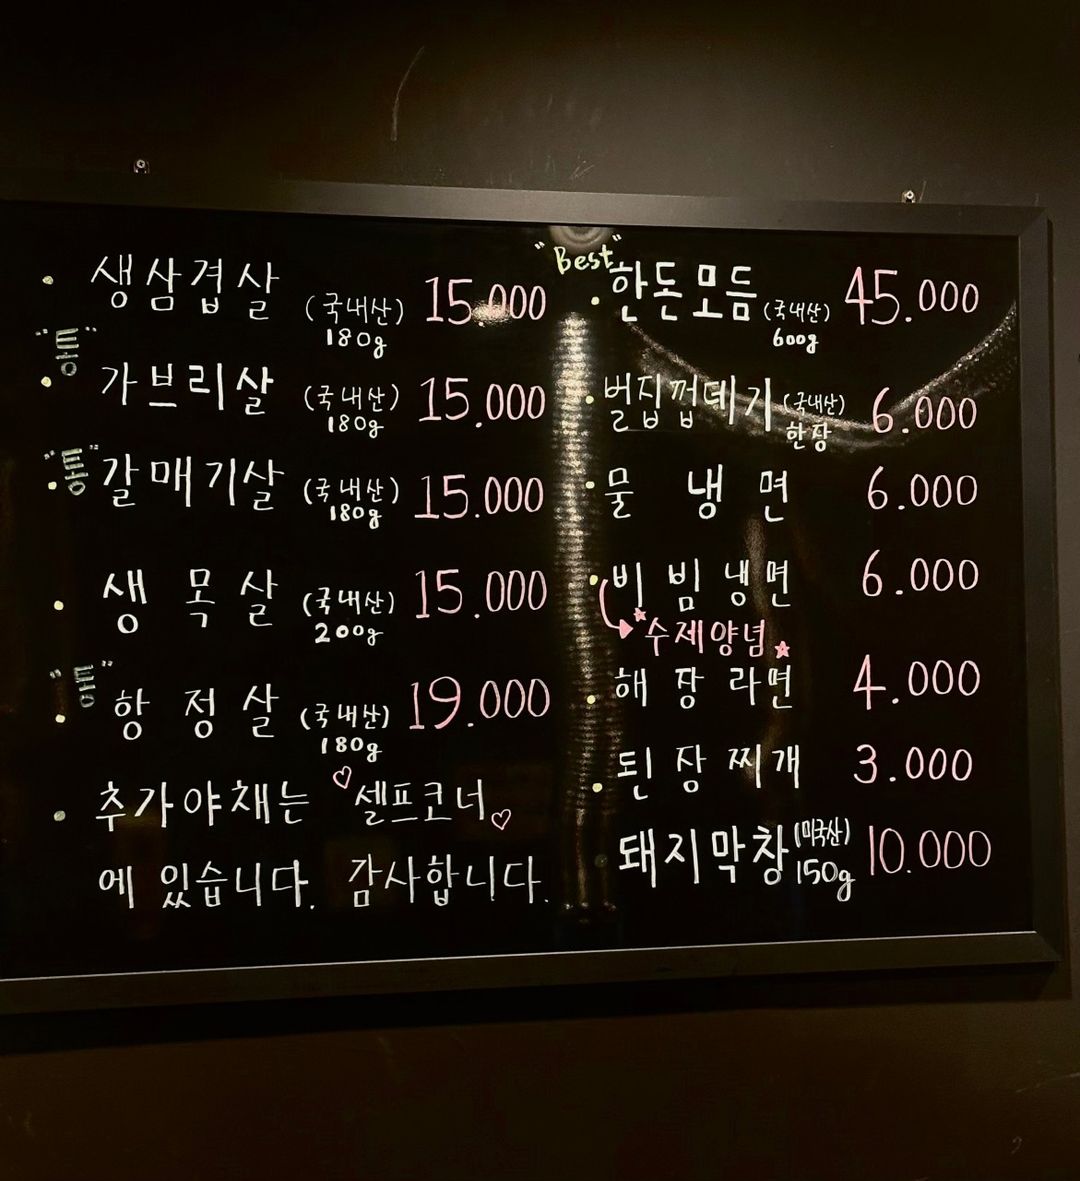 생삼겹살 (국내산) 180g 15.000
"통" 가브리살 (국내산) 180g 15.000
"통" 갈매기살 (국내산) 180g 15.000
생목살 (국내산) 200g 15.000
"통" 항정살 (국내산) 180g 19.000
추가야채는 ♡셀프코너♡
에 있습니다. 감사합니다.
"Best"
한돈모듬 (국내산) 600g 45.000
벌집껍데기 (국내산) 한장 6.000
물 냉면 6.000
비빔냉면 6.000
★수제양념★
해장라면 4.000
된장찌개 3.000
돼지막창 (미국산) 150g 10.000